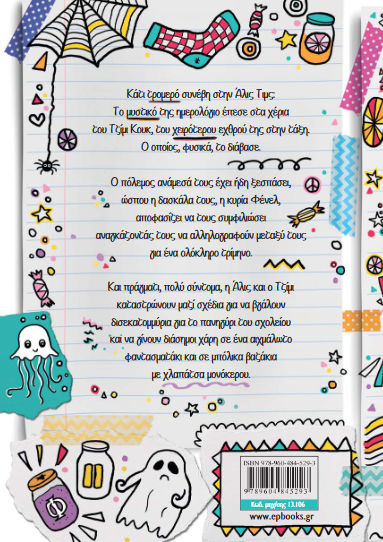 Κάτι τρομερό συνέβη στην Άλις Τιμς:
Το μυστικό της ημερολόγιο έπεσε στα χέρια
του Τζίμι Κουκ, του χειρότερου εχθρού της στην τάξη.
Ο οποίος, φυσικά, το διάβασε.
Ο πόλεμος ανάμεσά τους έχει ήδη ξεσπάσει,
ώσπου η δασκάλα τους, η κυρία Φένελ,
αποφασίζει να τους συμφιλιώσει
αναγκάζοντάς τους να αλληλογραφούν μεταξύ τους
για ένα ολόκληρο τρίμηνο.
Και πράγματι, πολύ σύντομα, η Άλις και ο Τζίμι
καταστρώνουν μαζί σχέδια για να βγάλουν
δισεκατομμύρια για το πανηγύρι του σχολείου
και να γίνουν διάσημοι χάρη σε ένα αιχμάλωτο
φαντασματάκι και σε μπόλικα βαζάκια
με χλαπάτσα μονόκερου.
ISBN 978-960-484-529-3
9 789604 845293
Κωδ. μηχ/σης 13.106
www.epbooks.gr